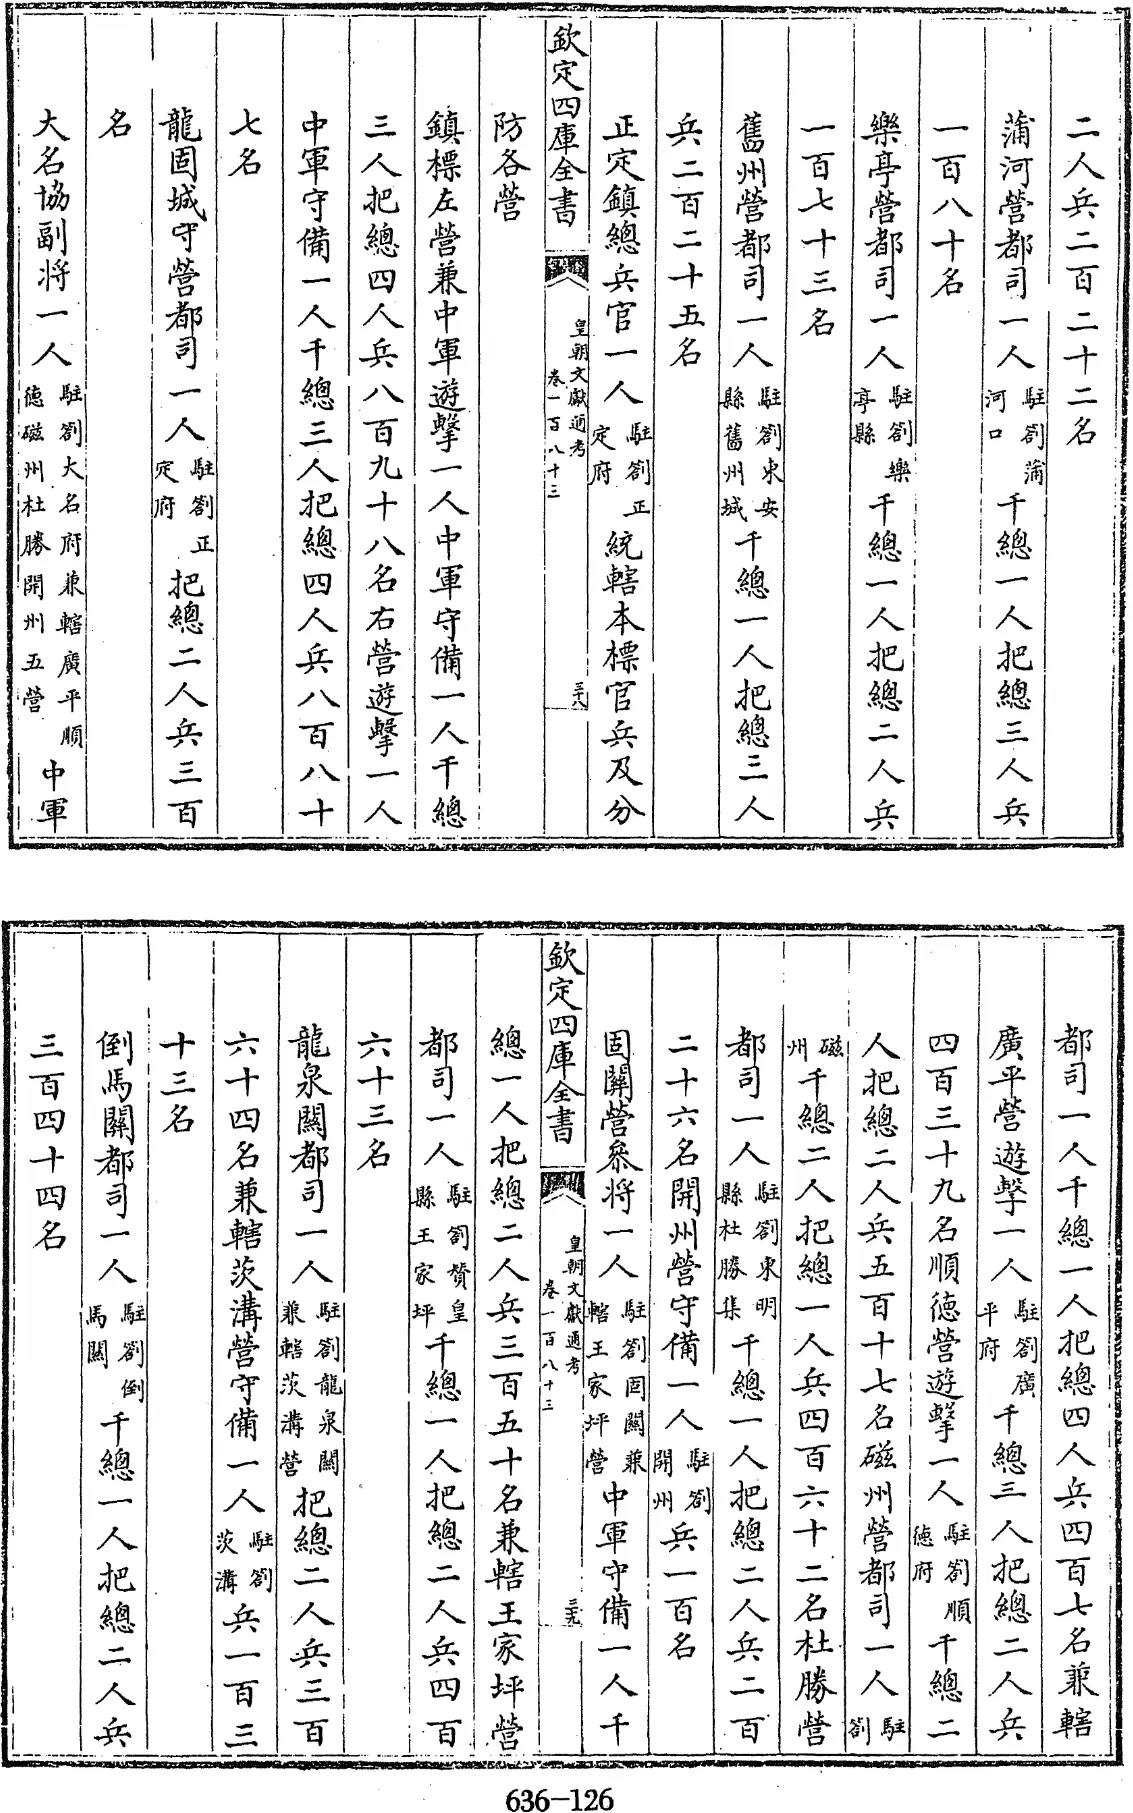 二人兵二百二十二名
蒲河營都司一人駐劄蒲河口千總一人把總三人兵
一百八十名
樂亭營都司一人駐劄樂亭縣千總一人把總二人兵
一百七十三名
舊州營都司一人駐劄東安縣舊州城千總一人把總三人
兵二百二十五名
正定鎮總兵官一人駐劄正定府統轄本標官兵及分
欽定四庫全書
皇朝文獻通考
卷一百八十三
三十八
防各營
鎮標左營兼中軍遊擊一人中軍守備一人千總
三人把總四人兵八百九十八名右營遊擊一人
中軍守備一人千總三人把總四人兵八百八十
七名
龍固城守營都司一人駐劄正定府把總二人兵三百
名
大名協副將一人駐劄大名府兼轄廣平順德磁州杜勝開州五營中軍
都司一人千總一人把總四人兵四百七名兼轄
廣平營遊擊一人駐劄廣平府千總三人把總二人兵
四百三十九名順德營遊擊一人駐劄順德府千總二
人把總二人兵五百十七名磁州營都司一人駐劄
磁州千總二人把總一人兵四百六十二名杜勝營
都司一人駐劄東明縣杜勝集千總一人把總二人兵二百
二十六名開州營守備一人駐劄開州兵一百名
固關營參將一人駐劄固關兼轄王家坪營中軍守備一人千
欽定四庫全書
皇朝文獻通考
卷一百八十三
三十九
總一人把總二人兵三百五十名兼轄王家坪營
都司一人駐劄贊皇縣王家坪千總一人把總二人兵四百
六十三名
龍泉關都司一人駐劄龍泉關兼轄茨溝營把總二人兵三百
六十四名兼轄茨溝營守備一人駐劄茨溝兵一百三
十三名
倒馬關都司一人駐劄倒馬關千總一人把總二人兵
三百四十四名
636-126